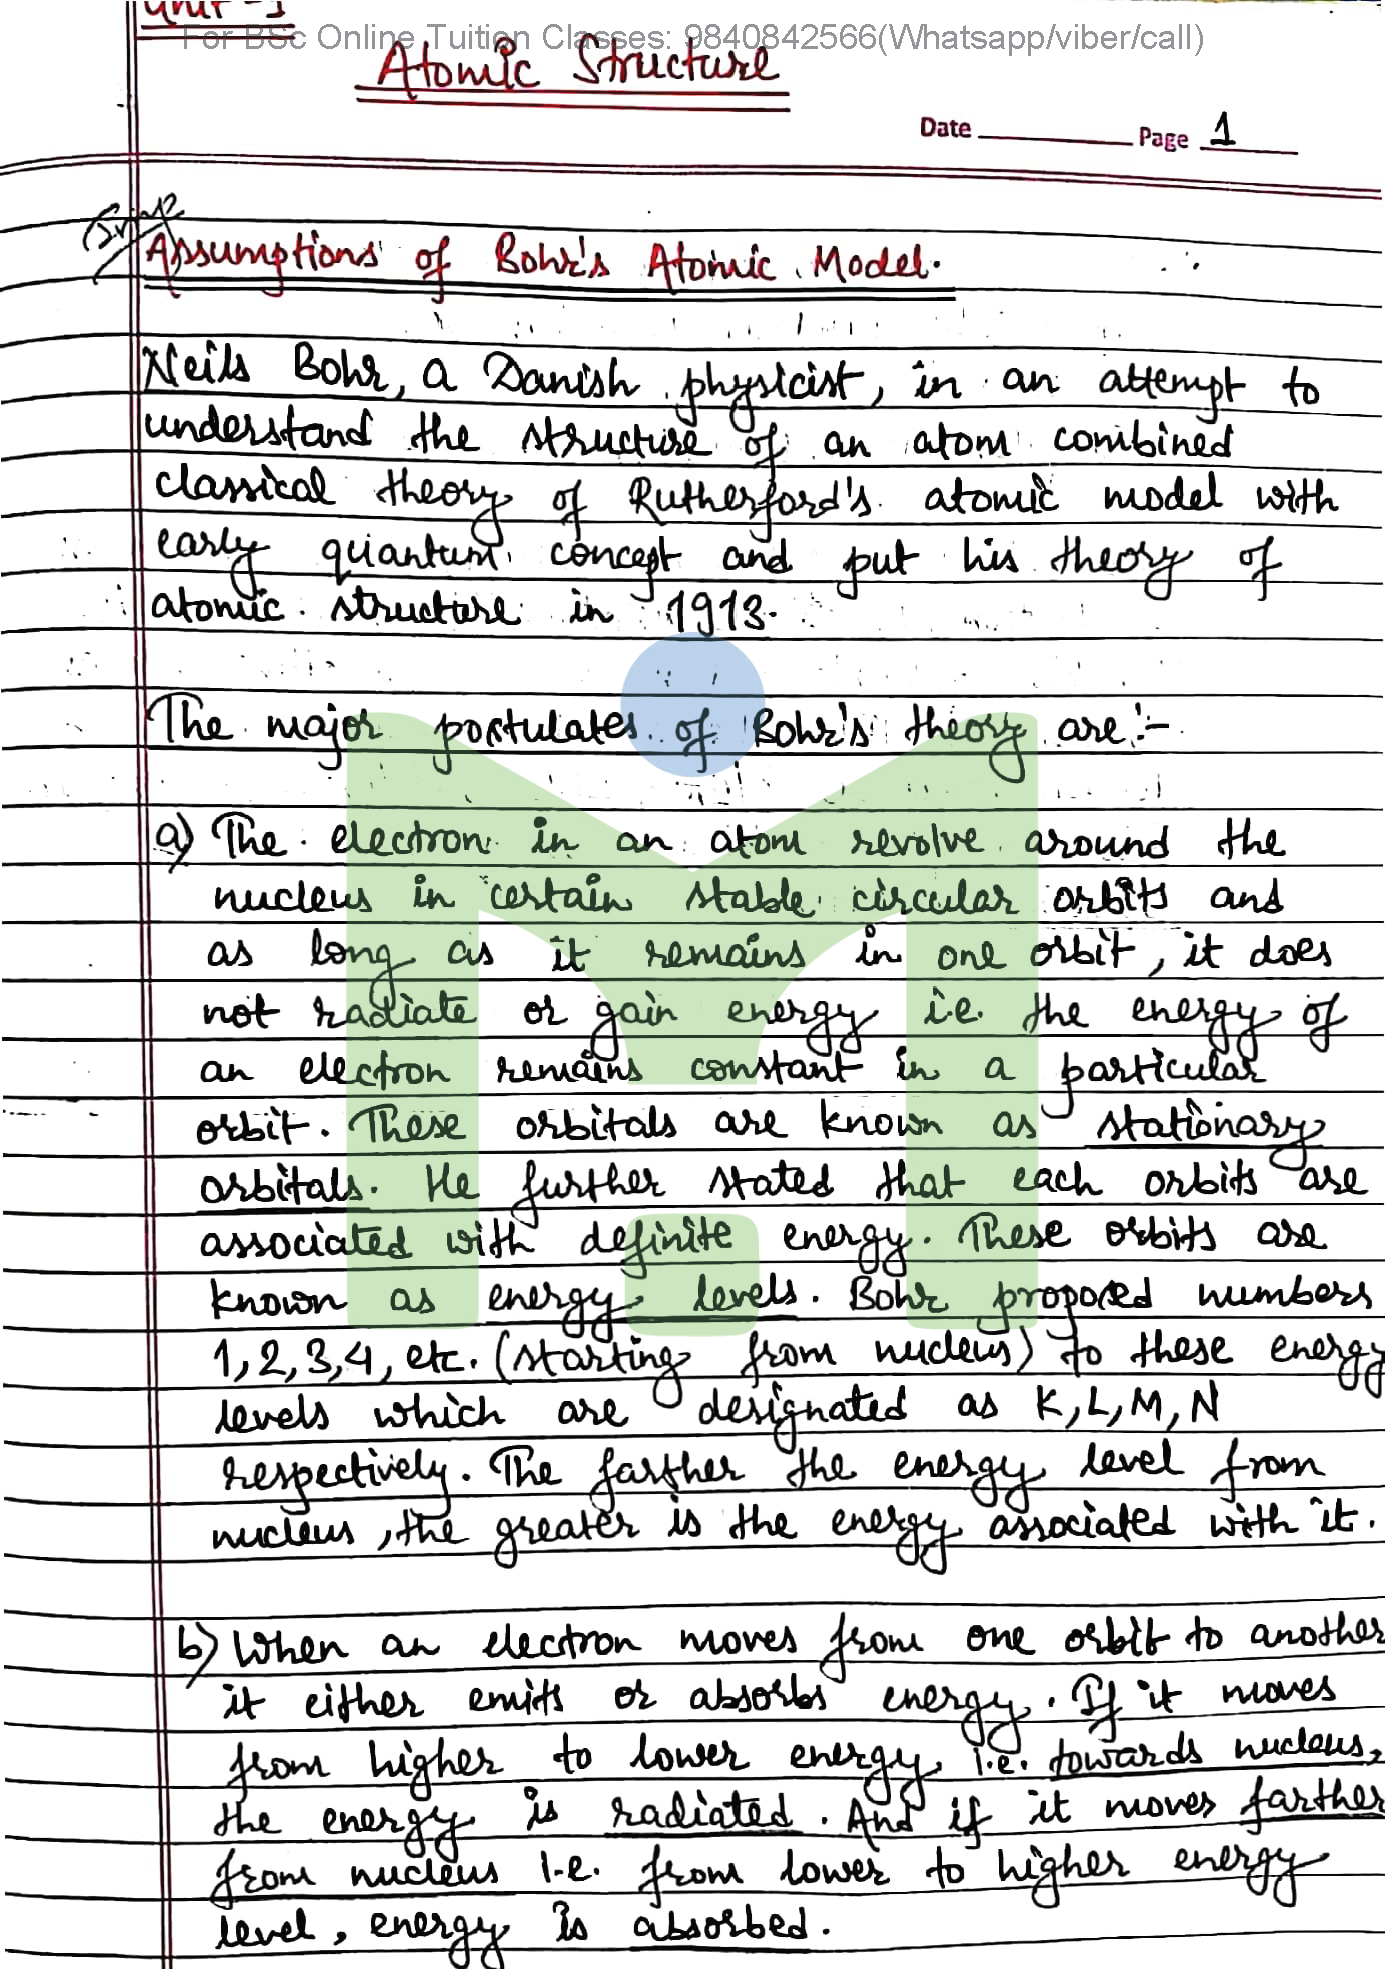 Unit-1
For BSc Online Tuition Classes: 9840842566(Whatsapp/viber/call)
Atomic Structure
Date Page 1
Imp
Assumptions of Bohr's Atomic Model.
Neils Bohr, a Danish physicist, in an attempt to
understand the structure of an atom combined
classical theory of Rutherford's atomic model with
early quantum concept and put his theory of
atomic structure in 1913.
The major postulates of Bohr's theory are:-
a) The electron in an atom revolve around the
nucleus in certain stable circular orbits and
as long as it remains in one orbit, it does
not radiate or gain energy i.e. the energy of
an electron remains constant in a particular
orbit. These orbitals are known as stationary
orbitals. He further stated that each orbits are
associated with definite energy. These orbits are
known as energy levels. Bohr proposed numbers
1,2,3,4, etc. (starting from nucleus) to these energy
levels which are designated as K,L,M,N
respectively. The farther the energy level from
nucleus, the greater is the energy associated with it.
b) When an electron moves from one orbit to another
it either emits or absorbs energy. If it moves
from higher to lower energy i.e. towards nucleus,
the energy is radiated. And if it moves farther
from nucleus i.e. from lower to higher energy
level, energy is absorbed.